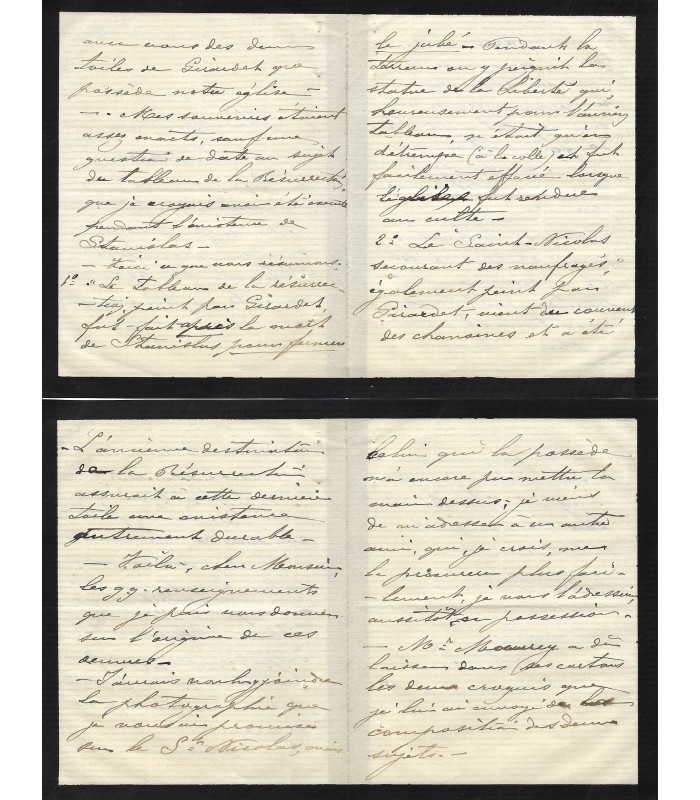 avec vous des deux
toiles de Girardet que
possède notre église —
— Mes souvenirs étaient
assez exacts, sauf une
question de date au sujet
du tableau de la Résurrection,
que je croyais avoir été exécuté
pendant l'existence de
Stanislas —
— Voici ce que nous
1° "Le Tableau de la résurrec-
-tion, peint par Girardet,
fut fait après la mort
de Stanislas pour fermer
le jubé — Pendant la
Terreur on y peignit la
statue de la Liberté qui,
heureusement pour l'ancien
tableau n'était qu'en
détrempe (à la colle) et fut
facilement effacée lorsque
l'église fut rendue
au culte —
2° Le "Saint-Nicolas
secourant des naufragés,"
également peint par
Girardet, vient du couvent
des chanoines et a été
— L'ancienne destination
de la Résurrection
assurait à cette dernière
toile une existence
autrement durable —
— Voilà, cher Monsieur,
les qq. renseignements
que je puis vous donner
sur l'origine de ces
œuvres —
— J'aurais voulu y joindre
la photographie que
je vous ai promise
sur le St Nicolas, mais
celui qui la possède
n'a encore pu mettre la
main dessus; je viens
de m'adresser à un autre
ami, qui, je crois, me
la procurera plus faci-
-lement, je vous l'adresserai,
aussitôt en possession —
— Mr a dû
laisser dans ses cartons
les deux croquis que
je lui ai envoyé de la
composition des deux
sujets. —